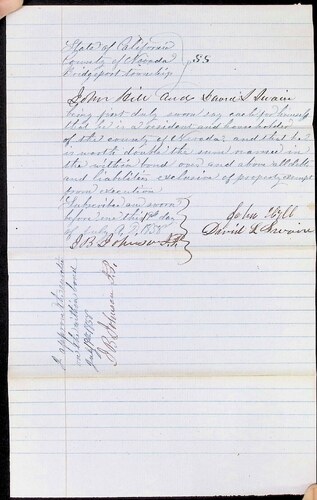 State of California
County of Nevada } SS
Bridgeport township
John Hill and David L Swain
being first duly sworn say each for himself
that he is a resident and householder
of the county of Nevada, and that he
is worth double the sum named in
the within bond over and above all debts
and liabilities exclusive of property exempt
from execution
Subscribed and sworn
before me this 1st day
of July A.D. 1858
J B Johnson J.P.
John Hill
David L Swain
I approve the sureties
on the within bond
July 1st 1858
J B Johnson J.P.